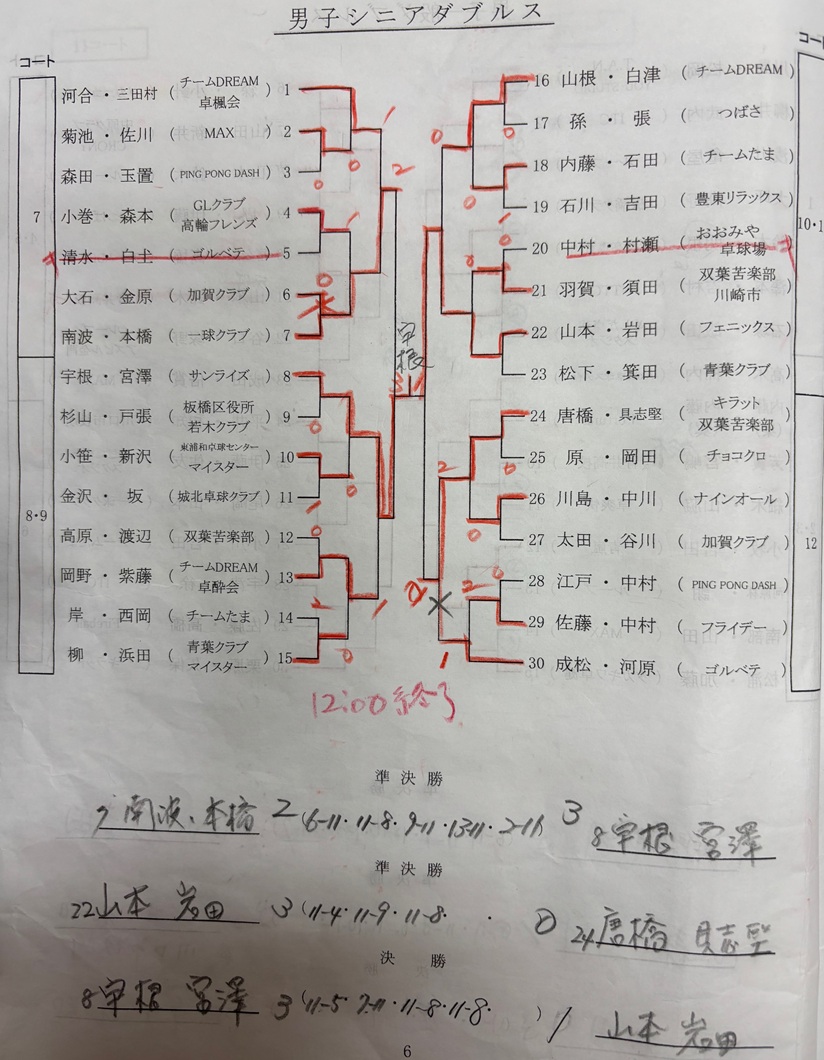 男子シニアダブルス
コート
コート
7
8・9
10・1
12
河合・三田村 ( チームDREAM 卓楓会 ) 1
菊池・佐川 ( MAX ) 2
森田・玉置 ( PING PONG DASH ) 3
小巻・森本 ( GLクラブ 高輪フレンズ ) 4
清水・白圡 ( ゴルベテ ) 5
大石・金原 ( 加賀クラブ ) 6
南波・本橋 ( 一球クラブ ) 7
宇根・宮澤 ( サンライズ ) 8
杉山・戸張 ( 板橋区役所 若木クラブ ) 9
小笹・新沢 ( 東浦和卓球センター マイスター ) 10
金沢・坂 ( 城北卓球クラブ ) 11
高原・渡辺 ( 双葉苦楽部 ) 12
岡野・紫藤 ( チームDREAM 卓酔会 ) 13
岸・西岡 ( チームたま ) 14
柳・浜田 ( 青葉クラブ マイスター ) 15
16 山根・白津 ( チームDREAM )
17 孫・張 ( つばさ )
18 内藤・石田 ( チームたま )
19 石川・吉田 ( 豊東リラックス )
20 中村・村瀬 ( おおみや 卓球場 )
21 羽賀・須田 ( 双葉苦楽部 川崎市 )
22 山本・岩田 ( フェニックス )
23 松下・箕田 ( 青葉クラブ )
24 唐橋・具志堅 ( キラット 双葉苦楽部 )
25 原・岡田 ( チョコクロ )
26 川島・中川 ( ナインオール )
27 太田・谷川 ( 加賀クラブ )
28 江戸・中村 ( PING PONG DASH )
29 佐藤・中村 ( フライデー )
30 成松・河原 ( ゴルベテ )
宇根
12:00 終了
準決勝
7 南波、本橋 2 (6-11・11-8・9-11・13-11・2-11) 3 8 宇根 宮澤
準決勝
22 山本 岩田 3 (11-4・11-9・11-8・ ・ ) 0 24 唐橋 具志堅
決勝
8 宇根 宮澤 3 (11-5 7-11・11-8・11-8・ ) 1 山本 岩田
6